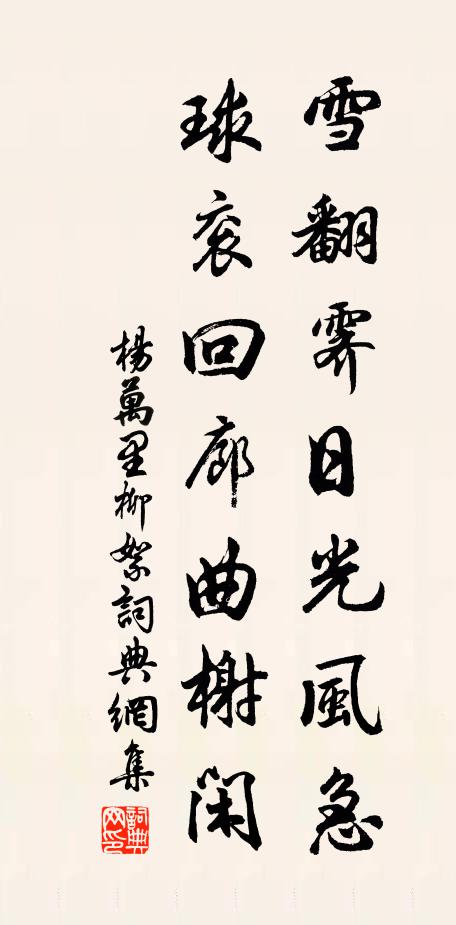 雪翻霽日光風急
球衮回廊曲榭闲
楊萬里柳絮詞典網集
詞典